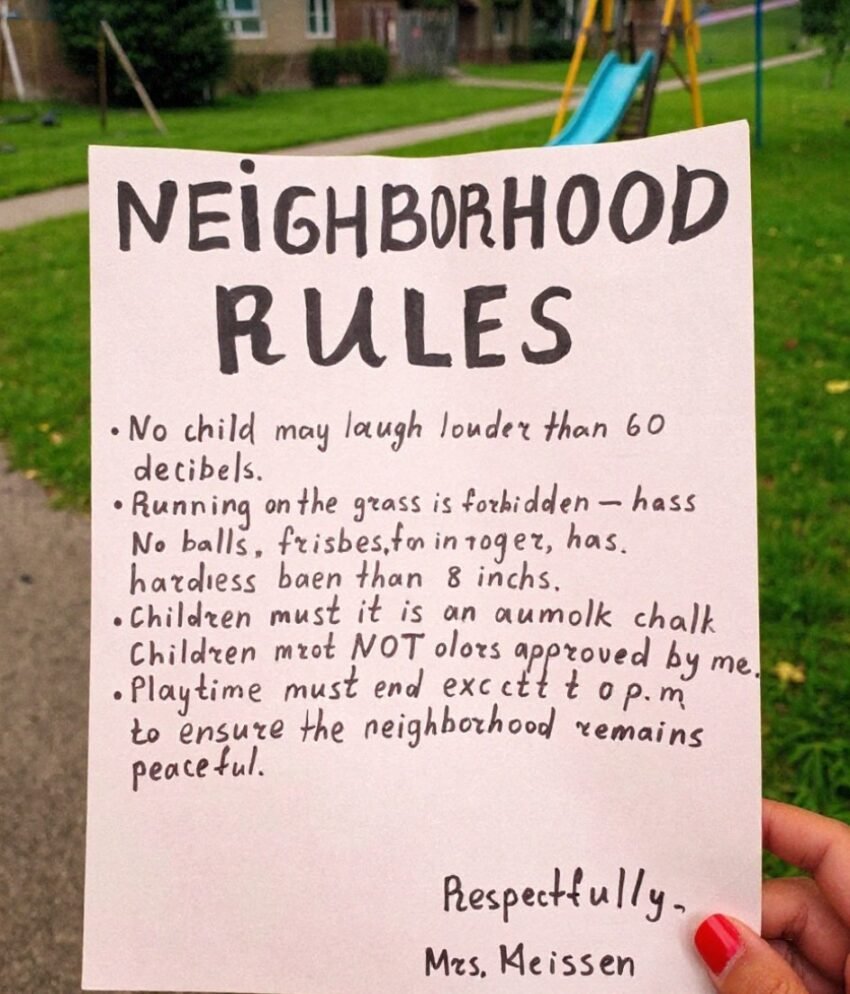 NEiGHBORHOOD
RULES
• No child may laugh louder than 60
decibels.
• Running on the grass is forbidden – hass
No balls, frisbes, for in roger, has.
hardiess baen than 8 inchs.
• Children must it is an aumolk chalk
Children mrot NOT olors approved by me.
• Playtime must end exc ctt t o p.m
to ensure the neighborhood remains
peaceful.
Respectfully-
Mrs. Meissen